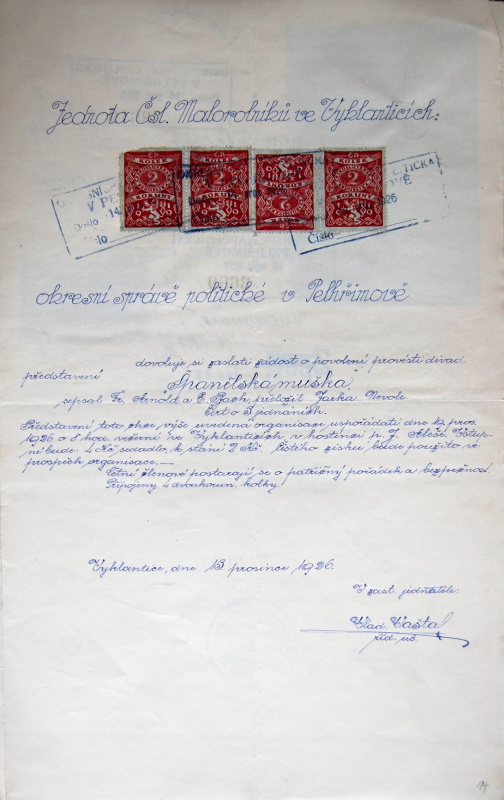 Jednota Čsl. Malorolníků ve Vyklanticích:
KOLEK KOLEK KOLEK KOLEK
2 2 2 2
KORUNY KORUNY KORUNY KORUNY
V PE
Došlo 14
Číslo
okresní správě politické v Pelhřimově
dovoluje si zaslati žádost o povolení provésti divad.
představení „Španělská muška"
sepsal Fr. Arnold a E. Bach, přeložil Jarka Nevole
Čert o 3 jednáních.
Představení toto chce výše uvedená organisace uspořádati dne 19. pros.
1926 o 8 hod. večerní ve Vyklanticích v hostinci p. J. Aleše. Vstup-
né bude: 4 Kč sedadlo, k stání 2 Kč. Čistého zisku bude použito ve
prospěch organisace.—
Četní členové postarají se o patřičný pořádek a bezpečnost.
Připojeny 4 dvoukorun. kolky.
Vyklantice, dne 13 prosince 1926.
V zast. jednatele:
Vlad. Vaštal
říd. uč.